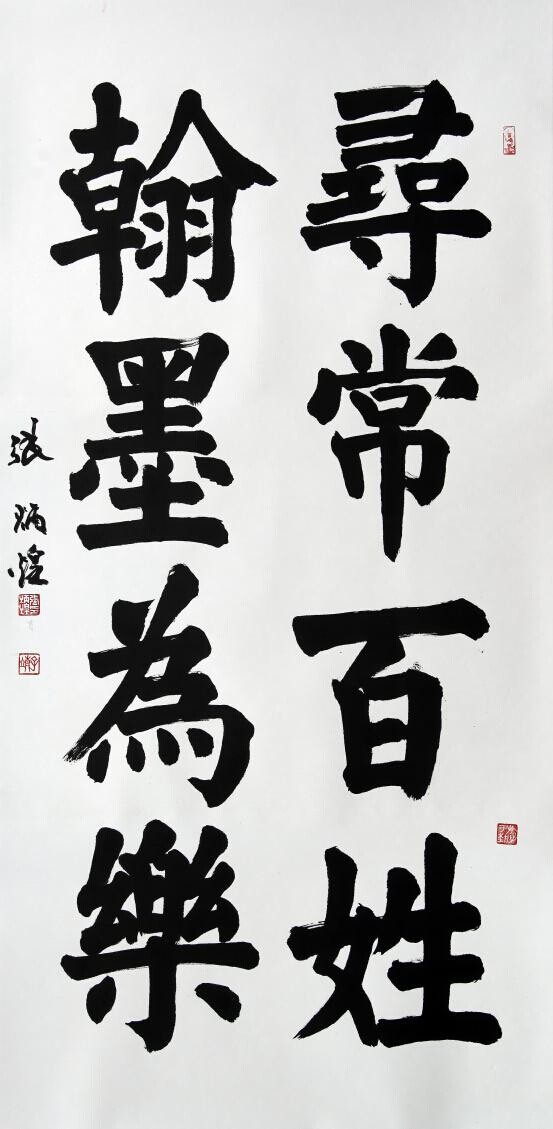 尋常百姓
翰墨為樂
張炳煌